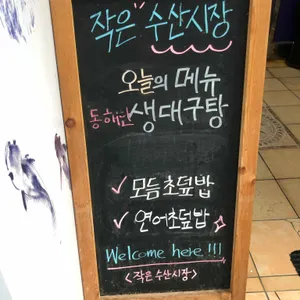 작은 수산시장
오늘의 메뉴
동해안 생대구탕
✓ 모듬초덮밥
✓ 연어초덮밥
Welcome here !!!
<작은 수산시장>